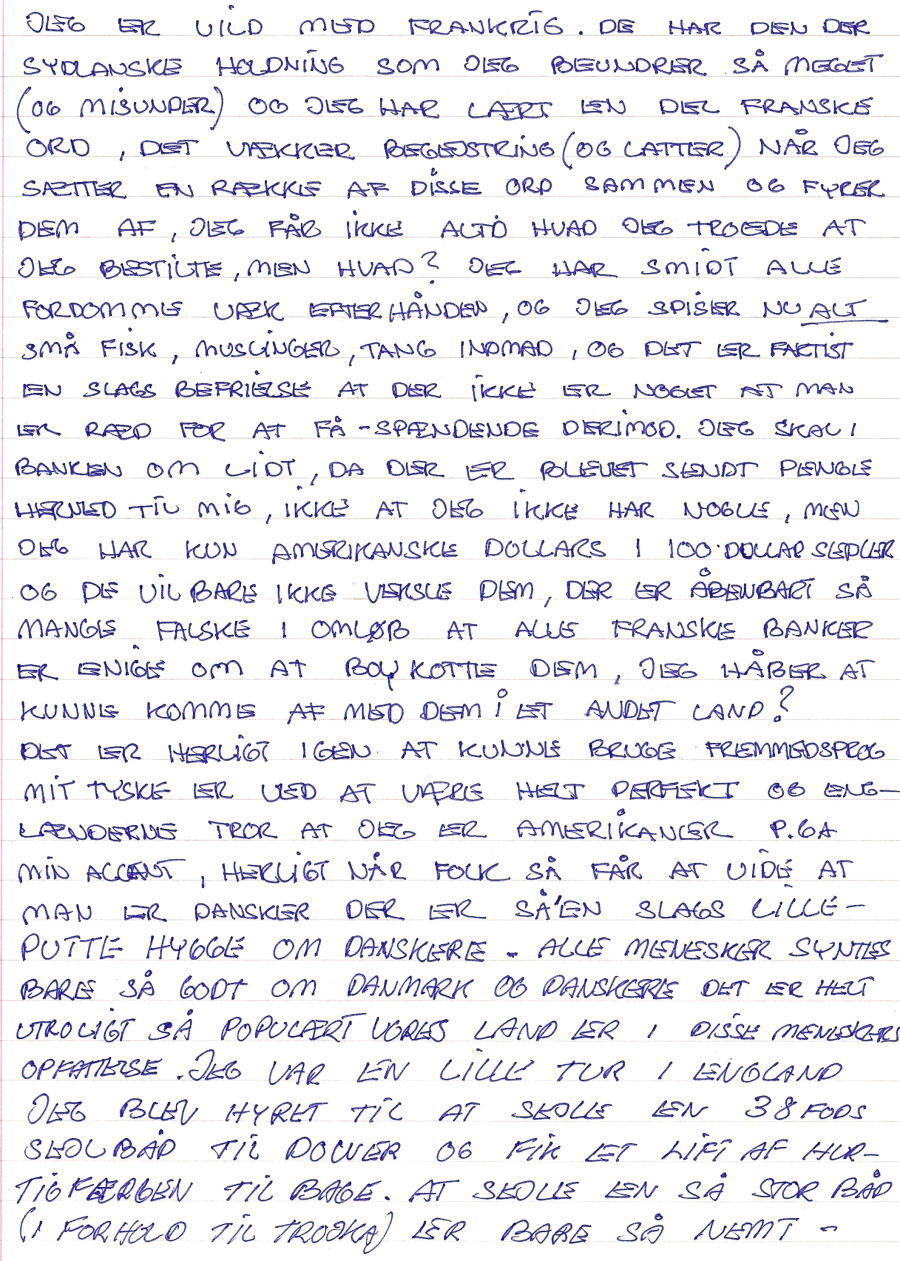 JEG ER VILD MED FRANKRIG. DE HAR DEN DER
SYDLANSKE HOLDNING SOM JEG BEUNDRER SÅ MEGET
(OG MISUNDER) OG JEG HAR LÆRT EN DEL FRANSKE
ORD, DET VÆKKER BEGEJSTRING (OG LATTER) NÅR JEG
SÆTTER EN RÆKKE AF DISSE ORD SAMMEN OG FYRER
DEM AF, JEG FÅR IKKE ALTID HVAD JEG TROEDE AT
JEG BESTILTE, MEN HVAD? JEG HAR SMIDT ALLE
FORDOMME VÆK EFTERHÅNDEN, OG JEG SPISER NU ALT
SMÅ FISK, MUSLINGER, TANG INDMAD, OG DET ER FAKTIST
EN SLAGS BEFRIELSE AT DER IKKE ER NOGET AT MAN
ER RÆD FOR AT FÅ - SPÆNDENDE DERIMOD. JEG SKAL I
BANKEN OM LIDT, DA DER ER BLEVET SENDT PENGE
HERNED TIL MIG, IKKE AT JEG IKKE HAR NOGLE, MEN
JEG HAR KUN AMERIKANSKE DOLLARS I 100 DOLLAR SEDLER
OG DE VIL BARE IKKE VEKSLE DEM, DER ER ÅBENBART SÅ
MANGE FALSKE I OMLØB AT ALLE FRANSKE BANKER
ER ENIGE OM AT BOYKOTTE DEM, JEG HÅBER AT
KUNNE KOMME AF MED DEM I ET ANDET LAND?
DET ER HERLIGT IGEN AT KUNNE BRUGE FREMMEDSPROG
MIT TYSKE ER VED AT VÆRE HELT PERFEKT OG ENG-
LÆNDERNE TROR AT JEG ER AMERIKANER P.GA
MIN ACCENT, HERLIGT NÅR FOLK SÅ FÅR AT VIDE AT
MAN ER DANSKER DER ER SÅ'EN SLAGS LILLE-
PUTTE HYGGE OM DANSKERE - ALLE MENESKER SYNTES
BARE SÅ GODT OM DANMARK OG DANSKERE DET ER HELT
UTROLIGT SÅ POPULÆRT VORES LAND ER I DISSE MENESKERS
OPFATTELSE. JEG VAR EN LILLE TUR I ENGLAND
JEG BLEV HYRET TIL AT SEJLE EN 38 FODS
SEJLBÅD TIL DOVER OG FIK ET LIFT AF HUR-
TIGFÆRGEN TILBAGE. AT SEJLE EN SÅ STOR BÅD
(I FORHOLD TIL TROJKA) ER BARE SÅ NEMT -